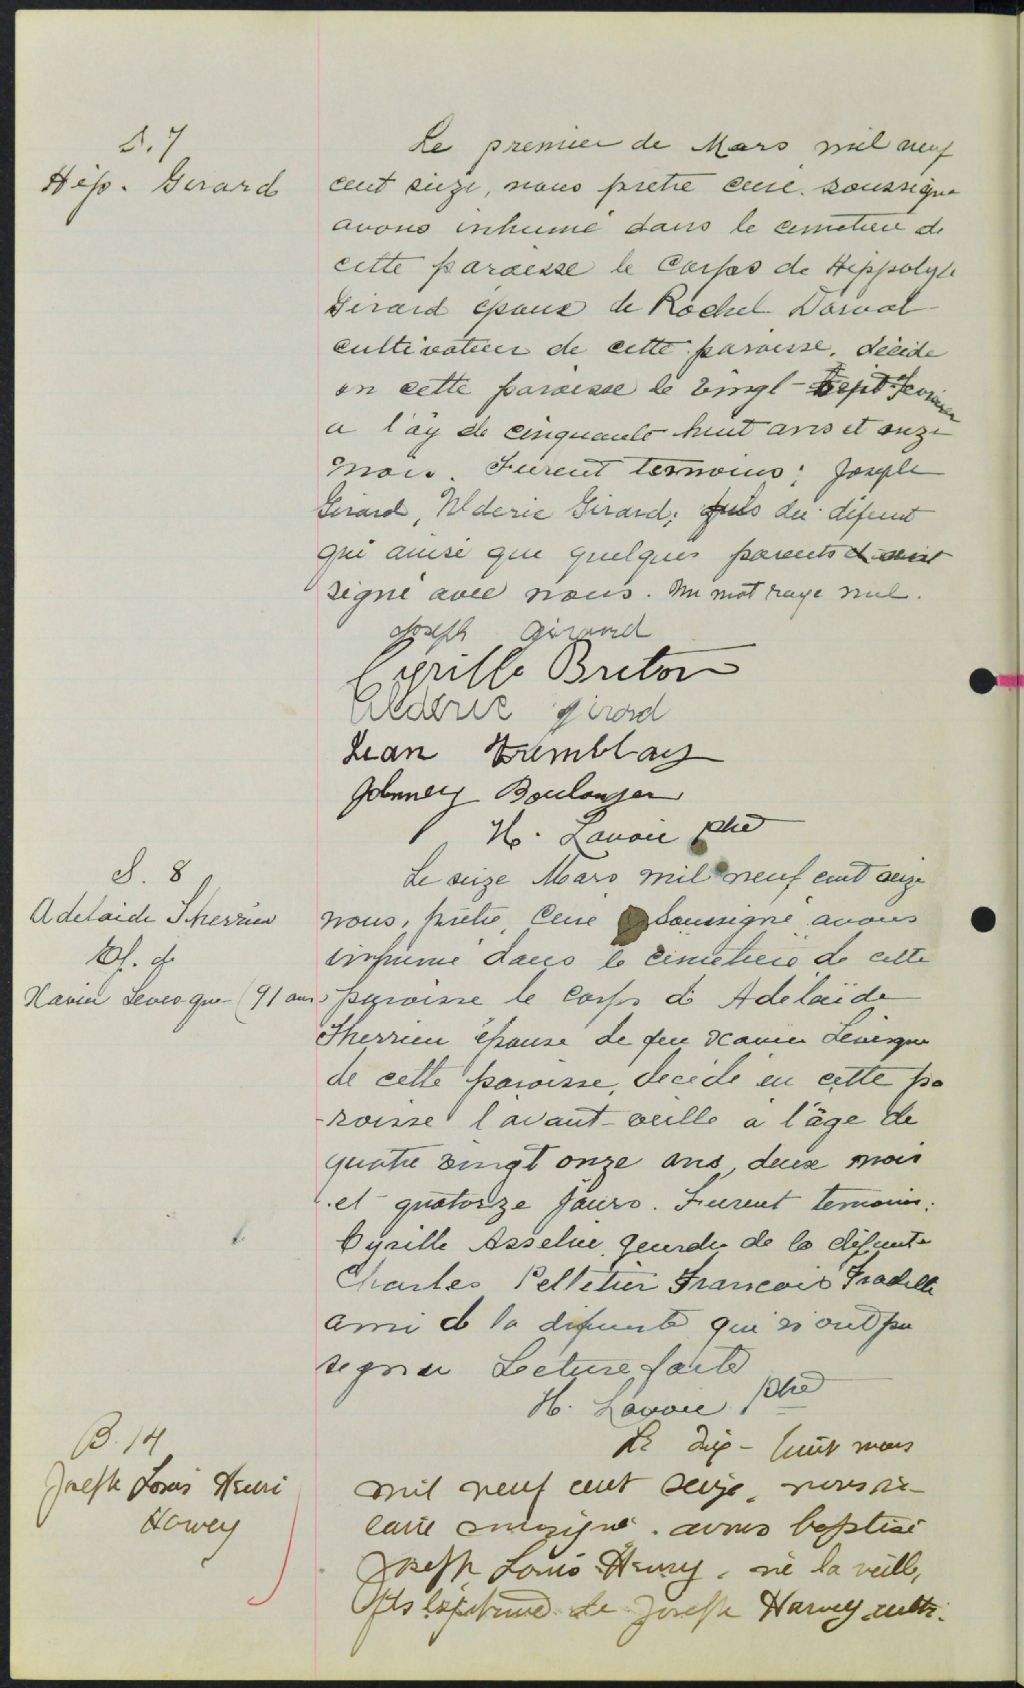 S. 7
Hip. Girard
Le premier de Mars mil neuf
cent seize, nous pretre curé soussigné
avons inhumé dans le cimetiere de
cette paroisse le corps de Hippolyte
Girard époux de Rachel Dorval
cultivateur de cette paroisse, décédé
en cette paroisse le vingt-sept Fevrier
a l'age de cinquante huit ans et onze
mois. Furent temoins: Joseph
Girard, Ulderic Girard; fils du défunt
qui ainsi que quelques parents ont
signé avec nous. Un mot rayé nul.
Joseph Girard
Cyrille Breton
Uldéric Girard
Jean Tremblay
Johnney Boulanger
H. Lavoie ptre
S. 8
Adelaide Therrien
Ep. de
Xavier Levesque (91 ans)
Le seize Mars mil neuf cent seize
nous, prêtre, Curé soussigné avons
inhumé dans le cimetiere de cette
paroisse le corps d' Adelaïde
Therrien épouse de feu Xavier Levesque
de cette paroisse, décédé en cette pa
-roisse l'avant-veille à l'âge de
quatre vingt onze ans, deux mois
et quatorze jours. Furent temoins:
Cyrille Asselin gendre de la défunte
Charles Pelletier François Fradette
ami de la defunte qui n'ont pu
signer Lecture faite
H. Lavoie ptre
B. 14
Joseph Louis Henri
Harvey
Le dix-huit mars
mil neuf cent seize, nous
curé soussigné. avons baptisé
Joseph Louis Henry, né la veille,
fils légitime de Joseph Harvey, culti-